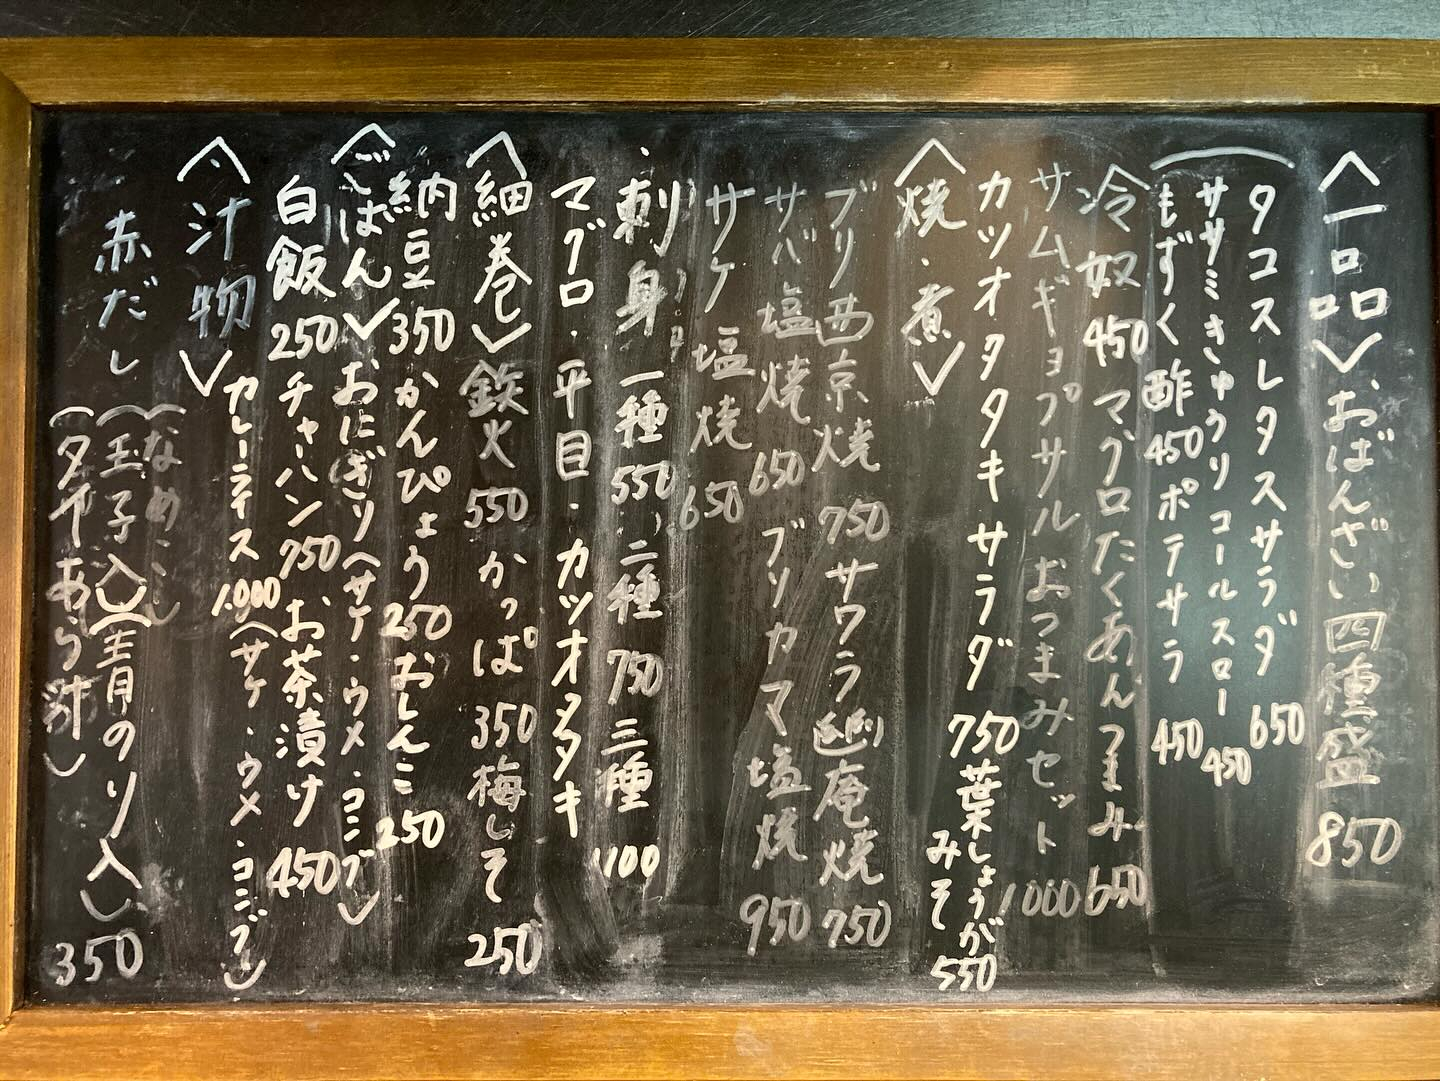 〈一品〉おばんざい四種盛 850
タコスレタスサラダ 650
ササミきゅうりコールスロー 450
もずく酢 450 ポテサラ 450
冷奴 450 マグロたくあんつまみ 650
サムギョプサルおつまみセット 1000
カツオタタキサラダ 750 葉しょうがみそ 550
〈焼・煮〉
ブリ西京焼 750 サワラ幽庵焼 750
サバ塩焼 650 ブリカマ塩焼 950
サケ塩焼 650
刺身 一種 550 二種 750 三種 1100
マグロ・平目・カツオタタキ
〈細巻〉鉄火 550 かっぱ 350 梅しそ 250
納豆 350 かんぴょう 250 おしんこ 250
〈ごはん〉おにぎり(サケ・ウメ・コンブ)
白飯 250 チャーハン 750 お茶漬け 450
カレーライス 1,000 (サケ・ウメ・コンブ)
〈汁物〉
(なめこ)
赤だし (玉子入)(青のり入) 350
(タイあら汁)